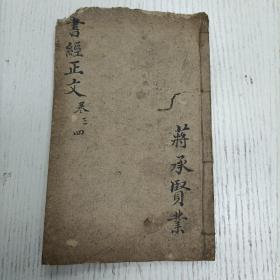 書經正文
卷三四
蔣承賢業